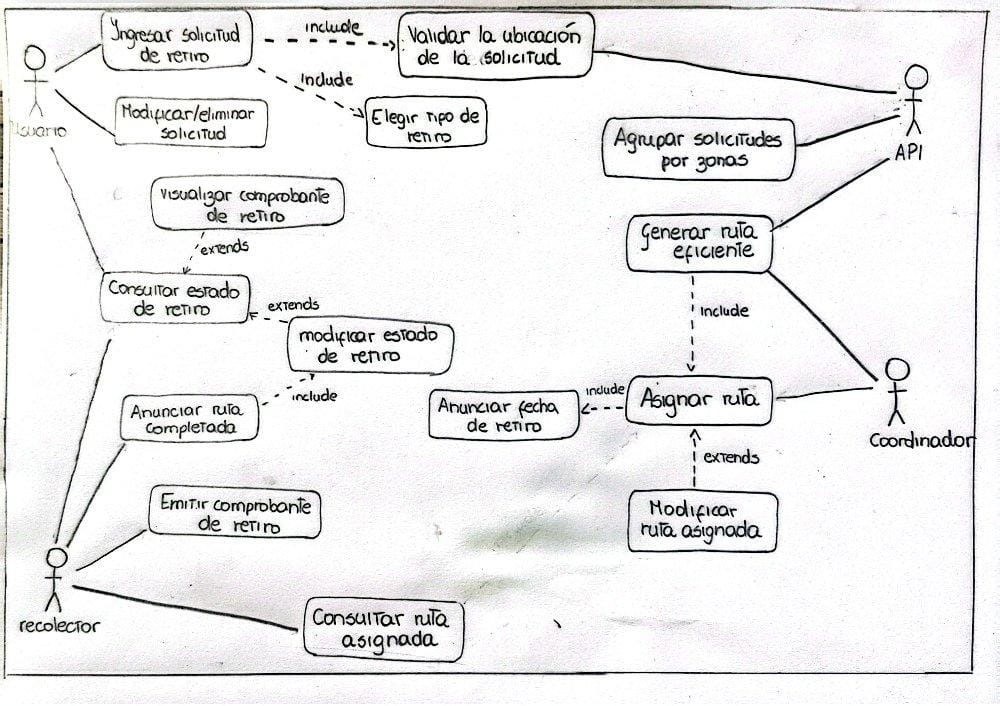 Ingresar solicitud
de retiro
include
Validar la ubicación
de la solicitud
Include
Usuario
Modificar/eliminar
solicitud
Elegir tipo de
retiro
Agrupar solicitudes
por zonas
API
Visualizar comprobante
de retiro
extends
Generar ruta
eficiente
Consultar estado
de retiro
extends
modificar estado
de retiro
Include
include
Anunciar ruta
completada
Anunciar fecha
de retiro
include
Asignar ruta
Coordinador
extends
Emitir comprobante
de retiro
Modificar
ruta asignada
recolector
Consultar ruta
asignada